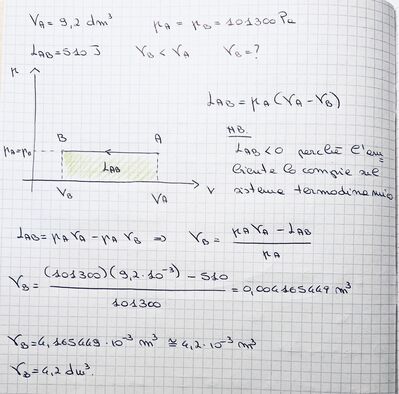 V_A = 9,2 dm³   p_A = p_B = 101300 Pa
L_AB = 510 J   V_B < V_A   V_B = ?
p
L_AB = p_A (V_A - V_B)
NB.
L_AB < 0 perché l'am
biente lo compie sul
sistema termodinamico
p_A = p_B
B   A
L_AB
V_B   V_A   V
L_AB = p_A V_A - p_A V_B ⇒ V_B = (p_A V_A - L_AB) / p_A
V_B = ((101300)(9,2·10⁻³) - 510) / 101300 = 0,004165449 m³
V_B = 4,165449·10⁻³ m³ ≅ 4,2·10⁻³ m³
V_B = 4,2 dm³.